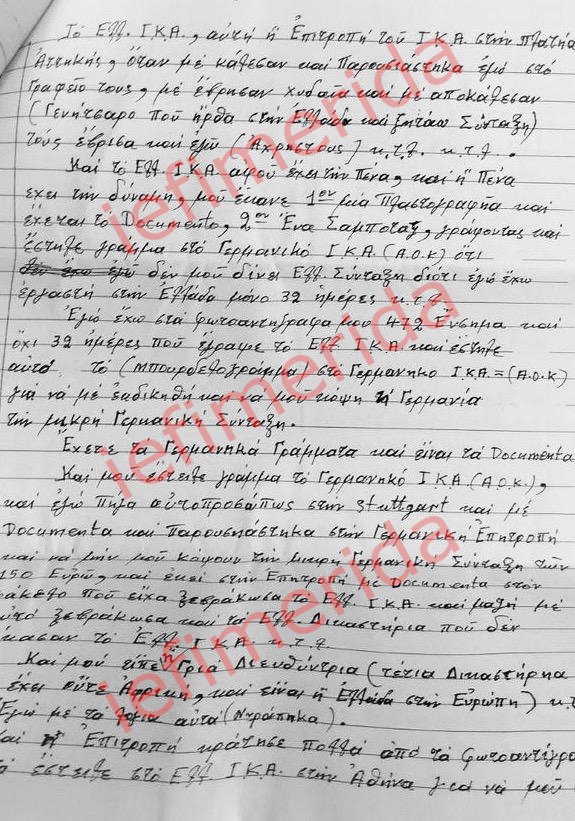 Τό Ελλ. Ι.Κ.Α., αὐτή ἡ Ἐπιτροπή τοῦ Ι.Κ.Α. στήν Πλατήα
Ἀττικῆς, ὅταν μέ κάθεσαν καί Παρουσιάστηκα ἐγώ στό
Γραφεῖο τους, μέ ἔβρησαν χυδαῖα καί μέ αποκάλεσαν
(Γενήτσαρο ποῦ ἦρθα στήν Ἑλλάδα καί ζητάω Σύνταξη)
τούς ἔβρισα καί ἐγώ (Ἄχρηστους) κ.τ.λ. κ.τ.λ.
Καί τό Ελλ. Ι.Κ.Α ἀφοῦ ἔχει τήν Πένα, καί ἡ Πένα
εχει τήν δύναμη, μοῦ ἔκανε 1ον μία Πλαστογραφηα καί
ἔχεται τό Documento, 2ον Ἕνα Σαμποταζ, γράφοντας καί
ἔστηλε γράμμα στό Γερμανικό Ι.Κ.Α. (Α.Ο.Κ) ὅτι
δέν μοῦ δίνει Ελλ. Σύνταξη διότι ἐγώ ἔχω
ἐργαστή στήν Ἑλλάδα μόνο 32 ἡμέρες κ.τ.λ.
Ἐγώ ἔχω στά φωτοαντηγραφα μου 472 Ἔνσημα καί
ὄχι 32 ἡμέρες ποῦ ἔγραψε τό Ελλ Ι.Κ.Α. καί ἔστηλε
αυτό τό (Μπουρδελογραμμα) στό Γερμανηκο Ι.Κ.Α.=(Α.Ο.Κ)
γιά να με ἐκδικηθῆ καί νά μου κοψη ἡ Γερμανία
τήν μικρή Γερμανική Σύνταξη.
Ἔχετε τα Γερμανηκά Γράμματα καί εἶναι τά Documenta
Καί μοῦ ἔστειλε γράμμα τό Γερμανηκό Ι.Κ.Α. (Α.Ο.Κ.),
καί ἐγώ πῆγα αὐτοπροσώπως στην Stuttgart καί μέ
Documenta καί Παρουσηάστηκα στήν Γερμανική Ἐπητροπή
καί νά μήν μοῦ κόψουν τήν μικρη Γερμανική Σύνταξη τῶν
150 Εὐρώ, καί ἐκεῖ στήν Ἐπητροπή με Documenta στόν
φάκελο ποῦ εἶχα ξεβράκωσα τό Ελλ. Ι.Κ.Α. καί μαζή μέ
αὐτό ξεβράκωσα καί τά Ελλ. Δικαστήρια ποῦ δέν
τό Ελλ Ι.Κ.Α. κ.τ.λ.
Καί μοῦ εἶπε ἡ Γριά Διευθύντρια (τέτια Δικαστήρηα
ἔχει οὔτε Ἀφρική, καί εἶναι ἡ Ἑλλάδα στήν Εὐρώπη) κ.τ
Ἐγώ μέ τά λόγια αὐτά (Ντράπηκα).
Καί ἡ Ἐπιτροπή κράτησε πολλά ἀπό τά φωτοαντίγρα
τά ἔστειλε στό Ελλ Ι.Κ.Α. στήν Ἀθήνα γιά νά μοῦ
iefimerida
iefimerida
iefimerida